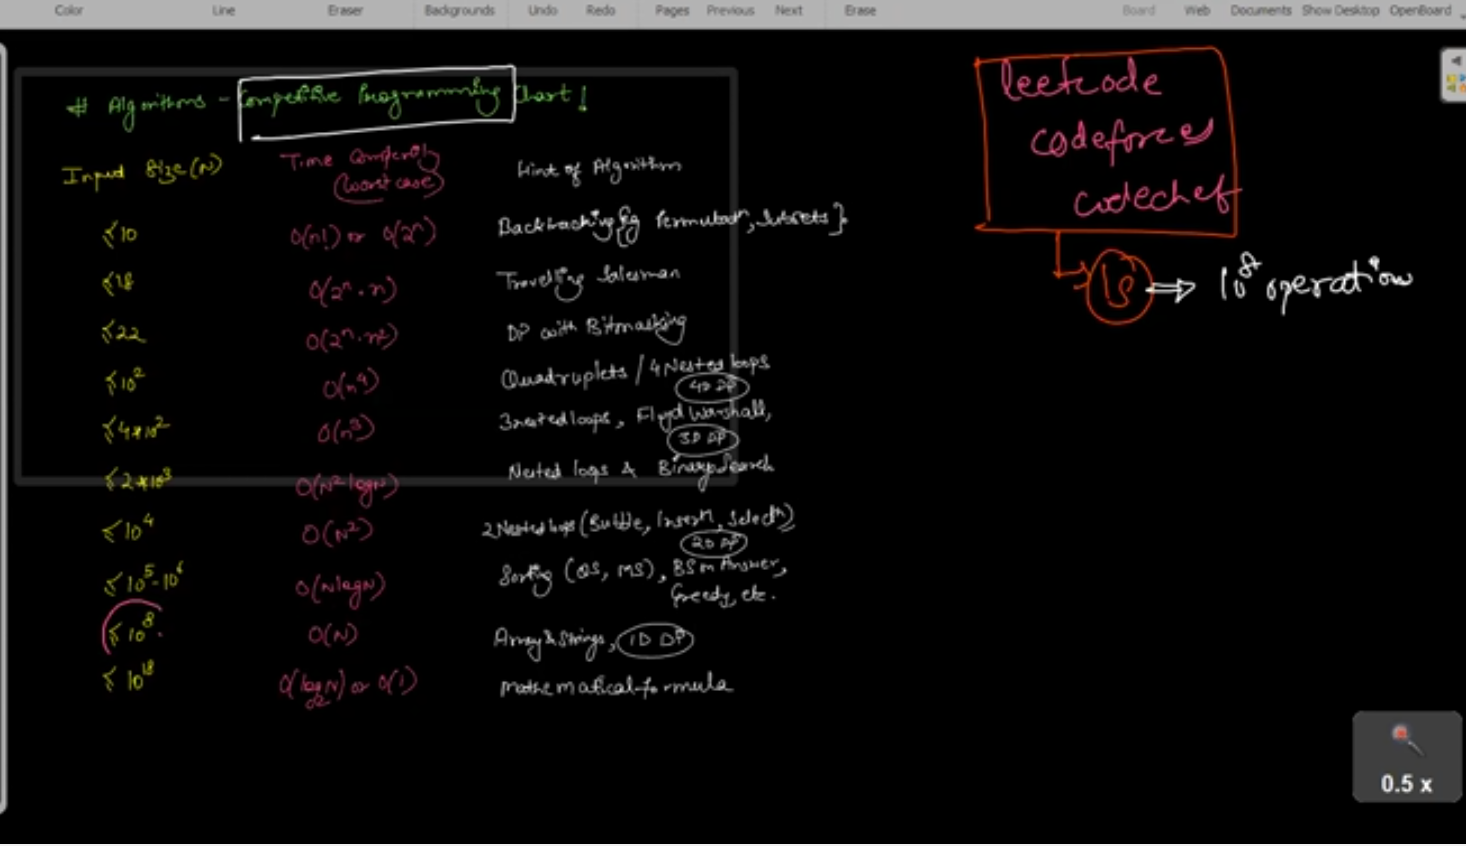 Color Line Eraser Backgrounds Undo Redo Pages Previous Next Erase Board Web Documents Show Desktop OpenBoard
# Algorithms - Competitive Programming Chart!
Input Size(N) Time Complexity (worst case) Hint of Algorithm
≤10 O(n!) or O(2ⁿ) Backtracking Permutatⁿ, Subsets}
≤18 O(2ⁿ·n) Travelling Salesman
≤22 O(2ⁿ·n²) DP with Bitmasking
≤10² O(n⁴) Quadruplets / 4 Nested loops
4D DP
≤4*10² O(n³) 3 nested loops, Floyd Warshall,
3D DP
≤2*10³ O(N² logN) Nested loops & Binary Search
≤10⁴ O(N²) 2 Nested loops (Bubble, Insertⁿ, Selectⁿ)
2D DP
≤10⁵-10⁶ O(NlogN) Sorting (QS, MS), BS on Answer,
Greedy, etc.
≤10⁸ O(N) Array & Strings, 1D DP
≤10¹⁸ O(logN) or O(1) mathematical formula
leetcode
codeforces
codechef
1s ⇒ 10⁸ operation
0.5 x